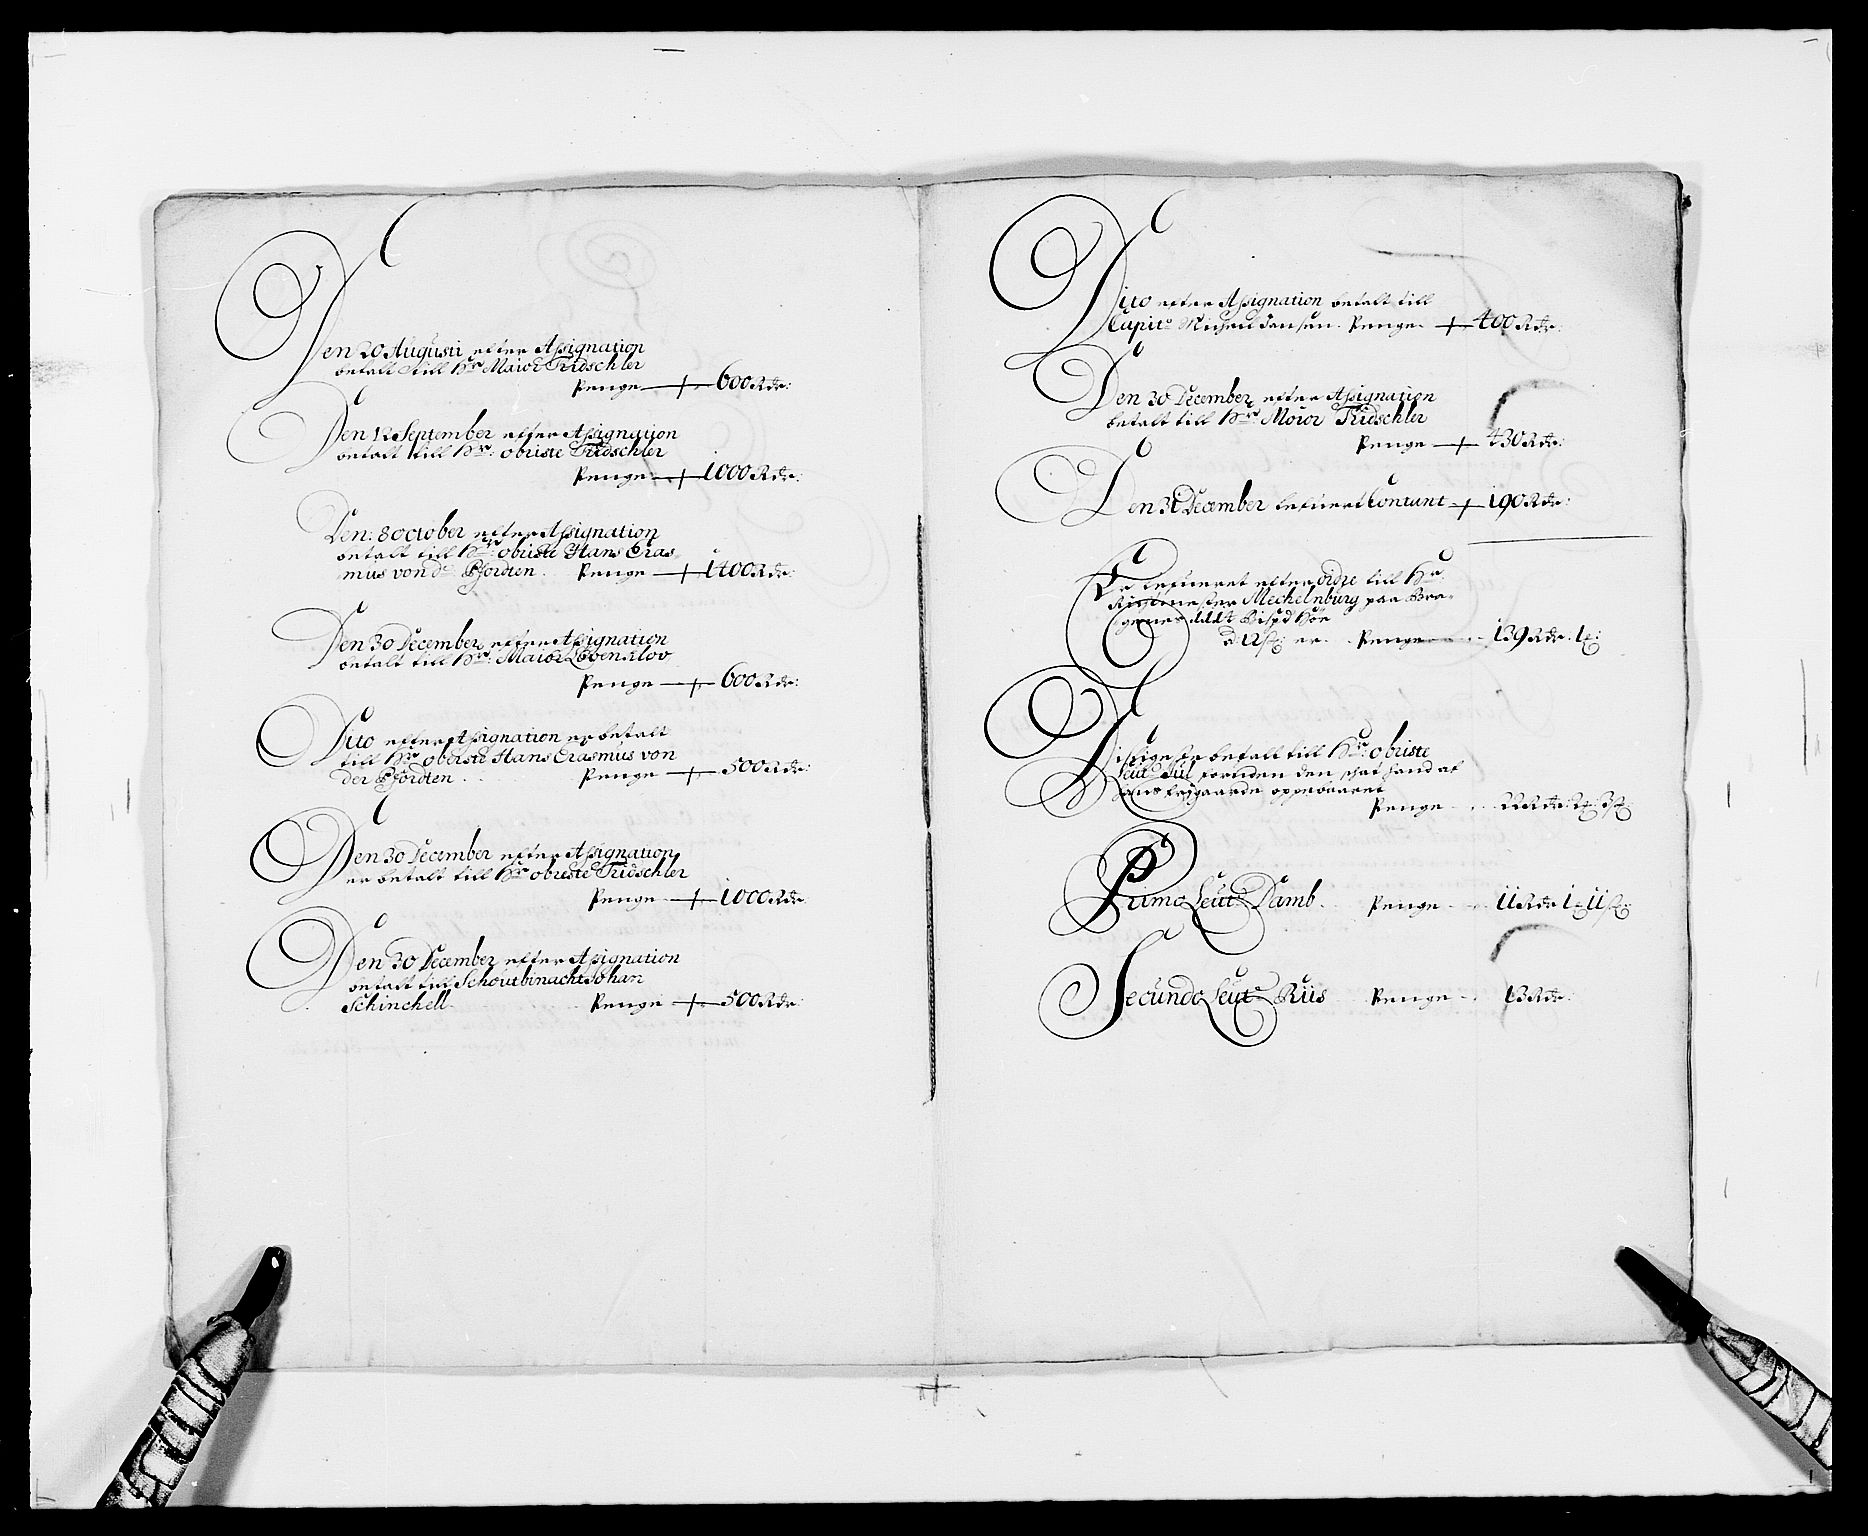 Den 20 Augusti efter Assignation
betalt till Hr Maior Tridschler
Penge 600 Rdr:
Den 12 September efter Assignation
betalt till Hr: obriste Tridschler
Penge 1000 Rdr:
Den: 8 october efter Assignation
betalt till Hr: obriste Hans Eras
mus von dr Pfordten. Penge 1400 Rdr:
Den 30 December efter Assignation
betalt till Hr: Maior Lövenklov
Penge 600 Rdr:
Dito efter Assignation er betalt
till Hr obriste Hans Erasmus von
der Pfordten. Penge 500 Rdr:
Den 30 December efter Assignation
er betalt till Hr obriste Tridschler
Penge 1000 Rdr:
Den 30 December efter Assignation
betalt till Schoutbinacht Johan
Schinchell. Penge 500 Rdr:
Dito efter Assignation betalt till
Capitn Jansen. Penge 400 Rdr:
Den 30 December efter Assignation
betalt till Hr Moior Tridschler
Penge 430 Rdr:
Den 31 December lefuert Contant 190 Rdr:
Er lefueret efter ordre till Hr:
Ritmester Mechelnburg paa Bra-
Hör
er. Penge 139 Rdr. 1
betalt till Hr: obriste
Leut: foruden den
hans oppebaaret
Penge 22 Rdr:
Primo Leut: Damb. Penge 11 Rdr 1 11
Secundo Leut: Riis Penge 13 Rdr: